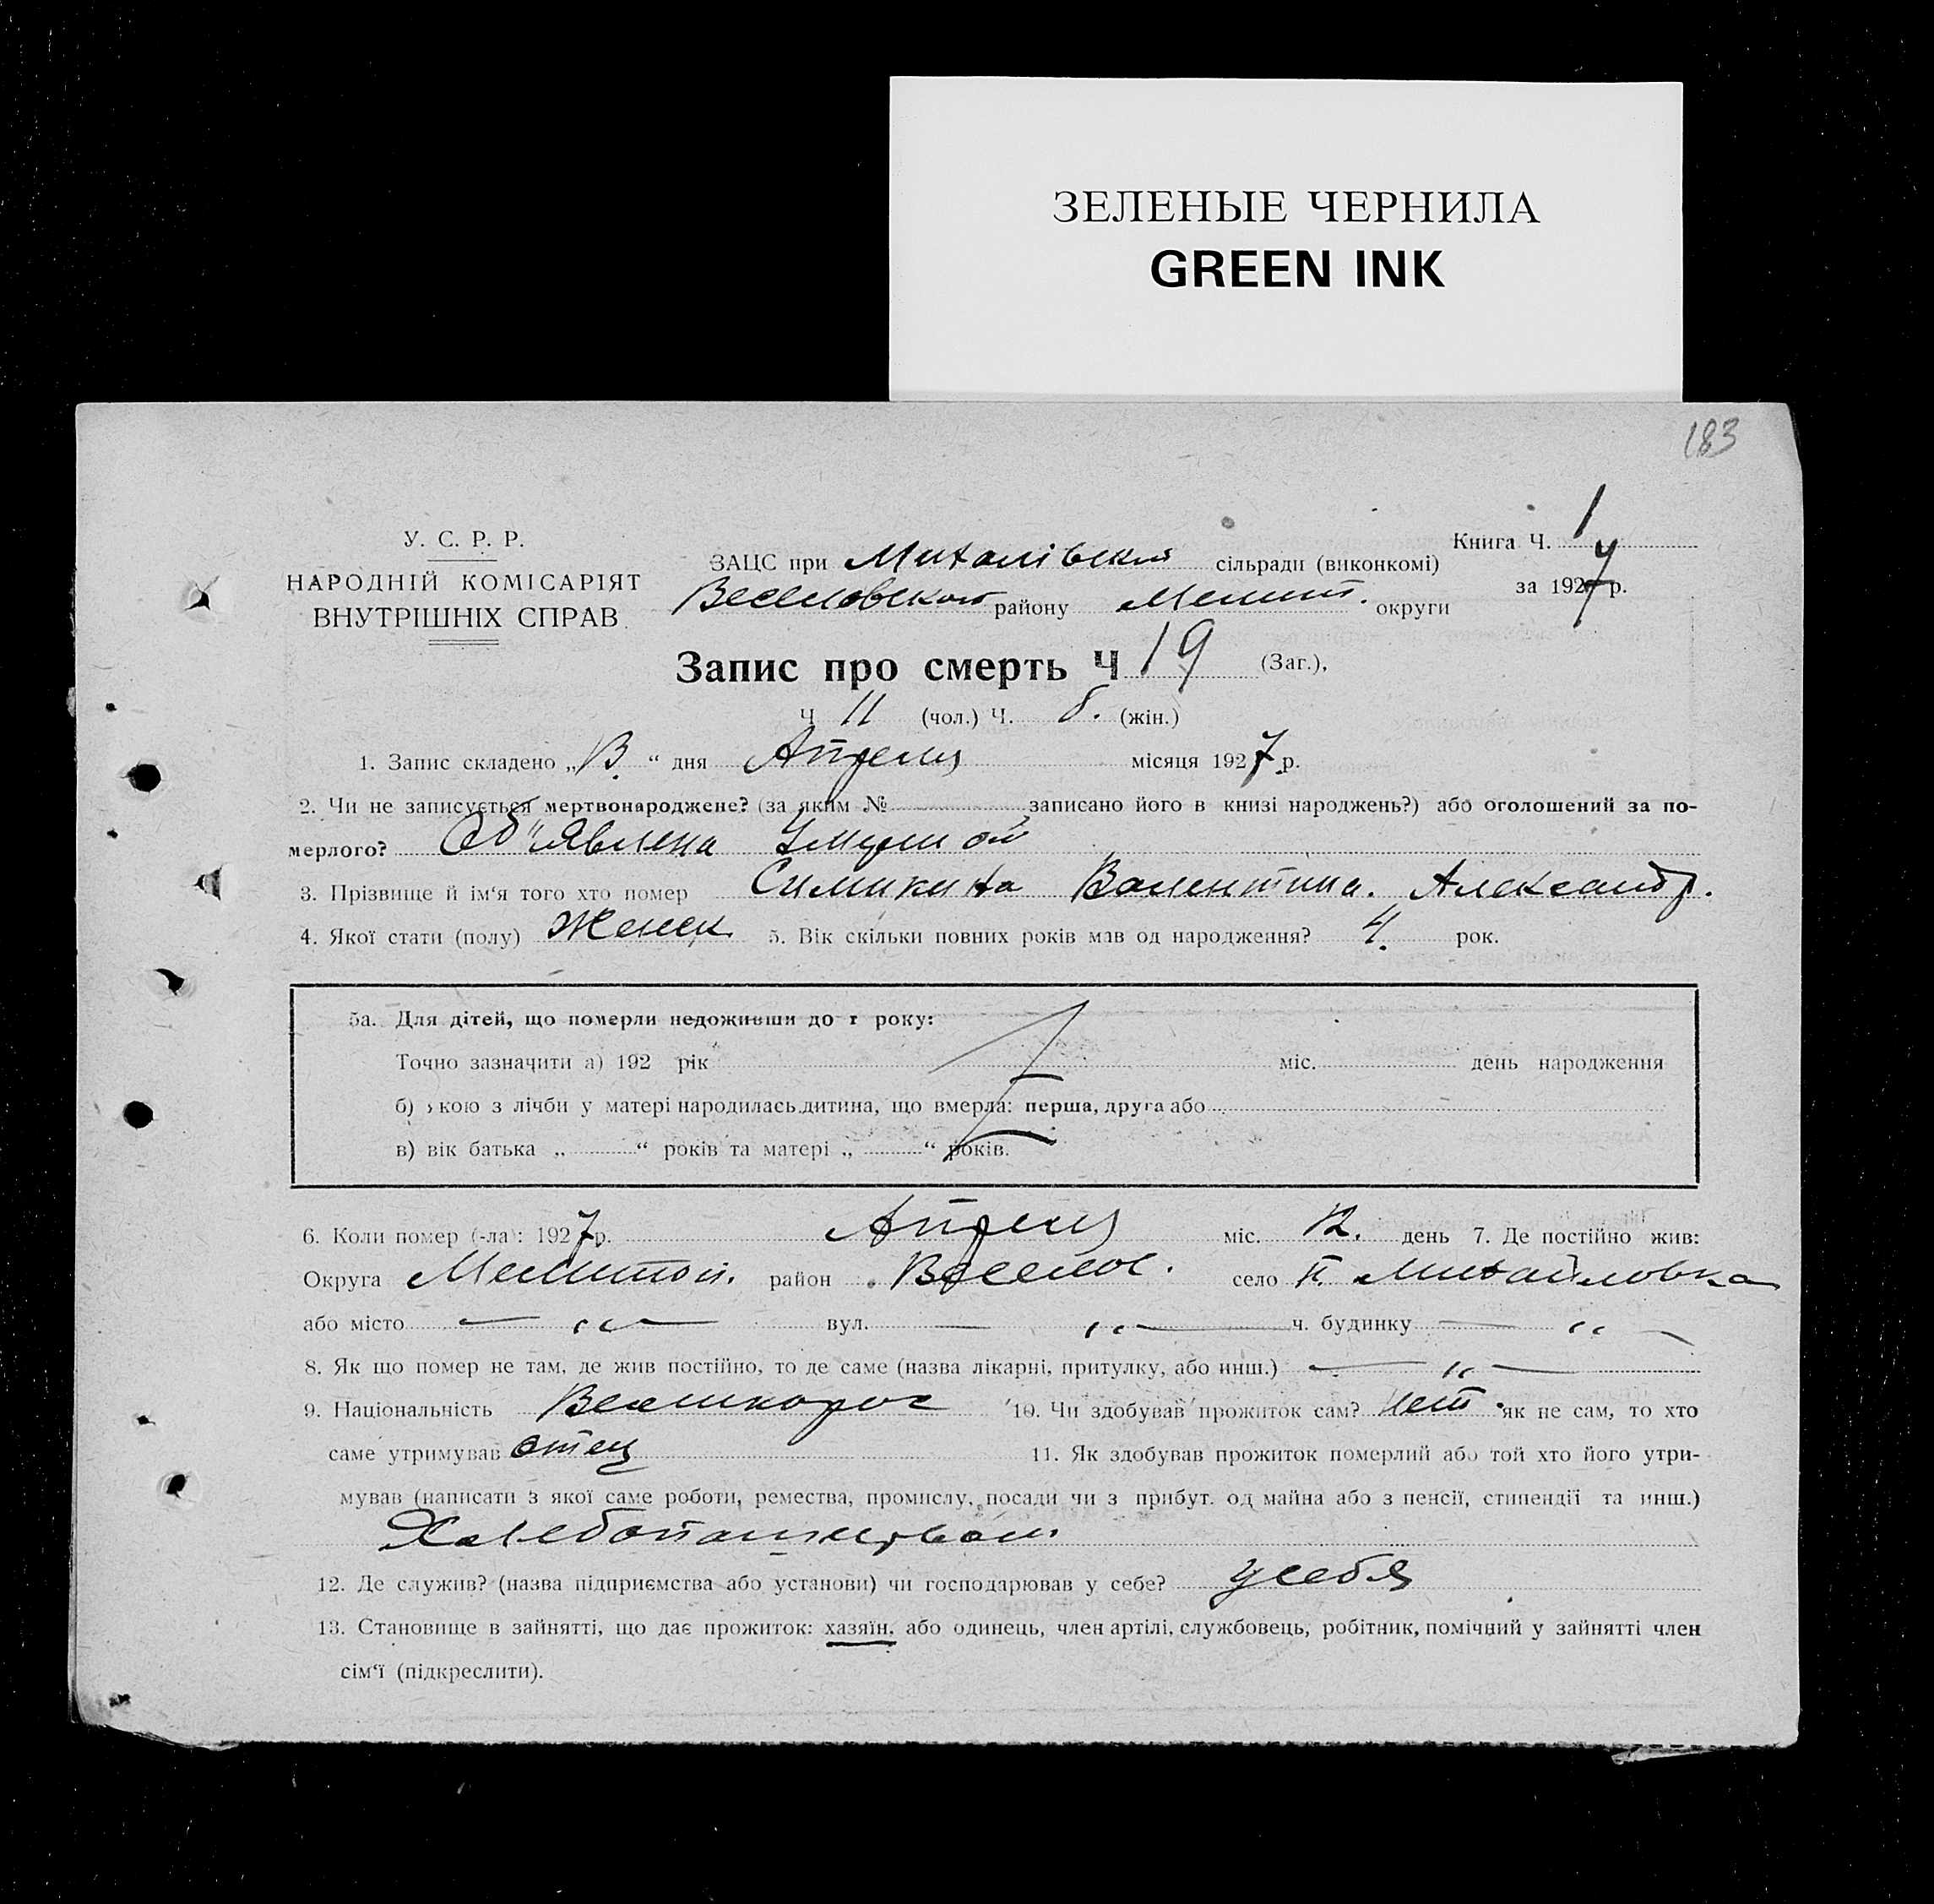 ЗЕЛЕНЫЕ ЧЕРНИЛА
GREEN INK
183
У. С. Р. Р.
НАРОДНІЙ КОМІСАРІЯТ
ВНУТРІШНІХ СПРАВ
Книга Ч. 1
за 1927 р.
ЗАЦС при сільради (виконкомі)
Веселовского району Мелит. округи
Запис про смерть Ч 19 (Заг.),
Ч 11 (чол.) Ч. (жін.)
1. Запис складено „ “ дня Апреля місяця 1927 р.
2. Чи не записується мертвонароджене? (за яким № записано його в книзі народжень?) або оголошений за по-
мерлого? Об"явлена
3. Прізвище й ім‘я того хто помер Валентина. Александр.
4. Якої стати (полу) Женск 5. Вік скільки повних років мав од народження? 4. рок.
5а. Для дітей, що померли недоживши до 1 року:
Точно зазначити а) 192 рік міс. день народження
б) якою з лічби у матері народилась дитина, що вмерла: перша, друга або
в) вік батька „ “ років та матері „ “ років.
6. Коли помер (-ла): 1927 р. Апреля міс. 12. день 7. Де постійно жив:
Округа Мелитоп. район Веселов. село П. Михайловка
або місто — „ — вул. — „ — ч. будинку — „ —
8. Як що помер не там, де жив постійно, то де саме (назва лікарні, притулку, або инш.) — „ —
9. Національність Великорос 10. Чи здобував прожиток сам? Нет як не сам, то хто
саме утримував отец 11. Як здобував прожиток померлий або той хто його утри-
мував (написати з якої саме роботи, ремества, промислу, посади чи з прибут. од майна або з пенсії, стипендії та инш.)
12. Де служив? (назва підприємства або установи) чи господарював у себе? у себя
13. Становище в зайнятті, що дає прожиток: хазяїн, або одинець, член артілі, службовець, робітник, помічний у зайнятті член
сім‘ї (підкреслити).